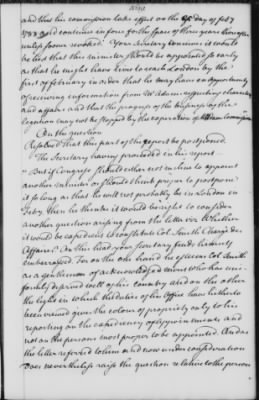 and that his commission take effect on the day of Feby
1788 and continue in force for the space of three years thereafter
unless sooner revoked. Your Secretary conceives it would
be best that this minister should be appointed so early
as that he might have time to reach London by the
first of February in order that he may have an opportunity
of receiving information from Mr Adams respecting characters
and affairs and that the progress of the business of the
Legation may not be stopped by the expiration of Commission
On the question
Resolved That this part of the report be postponed.
The Secretary having proceeded in his report
"But if Congress should either not incline to appoint
another minister or should think proper to postpone
it so long as that he will not probably be in London in
Feby, then he thinks it would be right to consider
another question arising from the letter viz Whether
it would be expedient to constitute Col. Smith Chargé des
Affaires? On this head your Secretary finds himself
embarrassed. For on the one hand he esteems Col Smith
as a gentleman of acknowledged merit who has uni-
formly deserved well of his country and on the other
the light in which the duties of his Office have hitherto
been viewed gives the colour of propriety only to his
reporting on the expediency of appointments and
not on the persons most proper to be appointed. And as
the letter referred to him and now under consideration
does nevertheless raise the question relative to the person